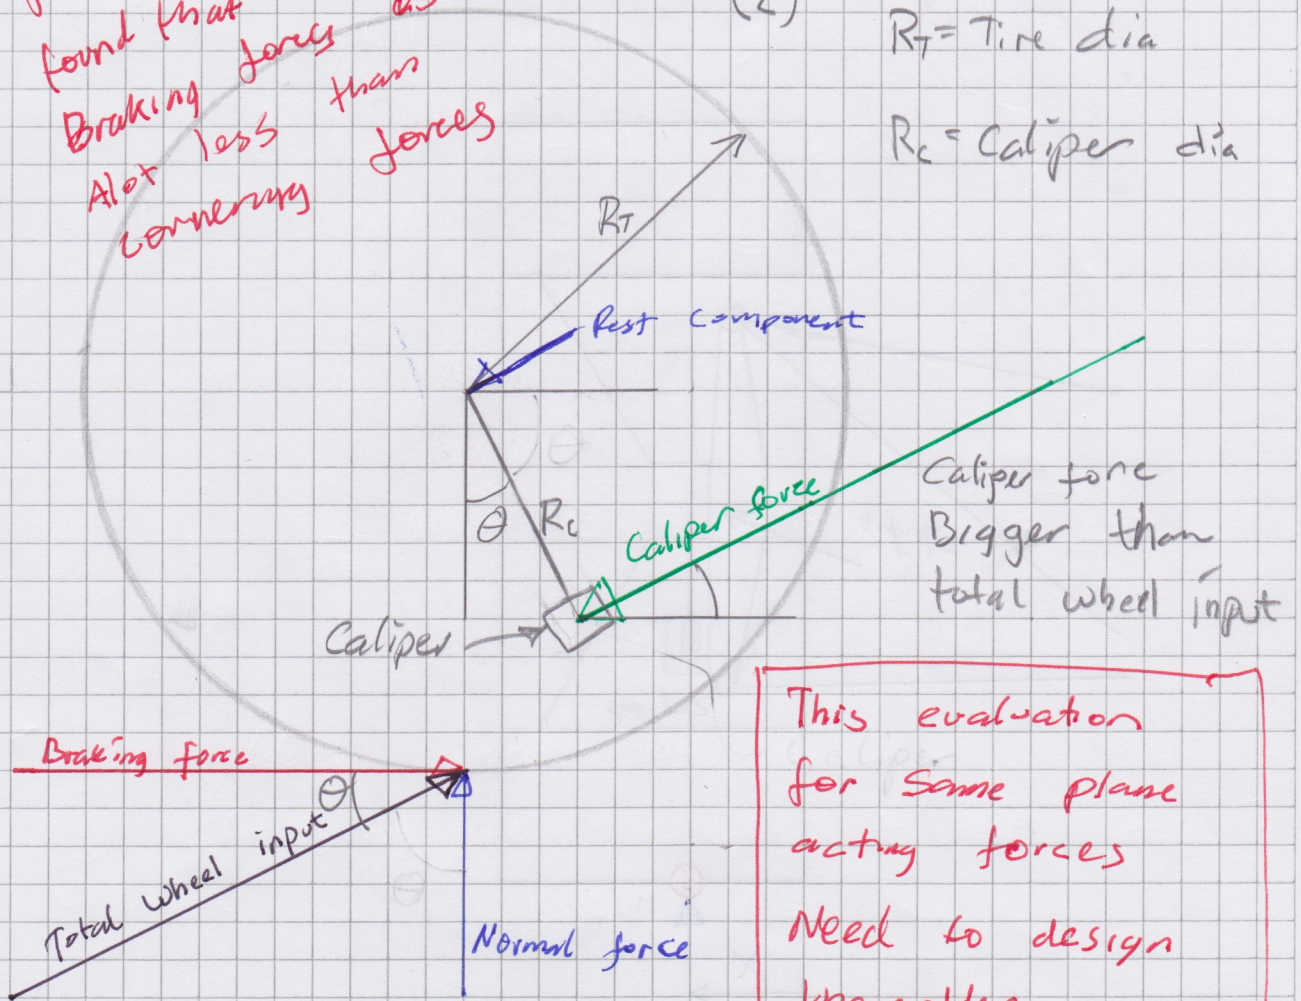 found that
Braking forces as
Alot less than
cornering forces
(2)
R_T = Tire dia
R_c = Caliper dia
R_T
Rest component
θ
θ
R_c
Caliper force
Caliper fore
Bigger than
total wheel input
Caliper
Braking force
θ
Total wheel input
Normal force
This evaluation
for same plane
acting forces
Need to design